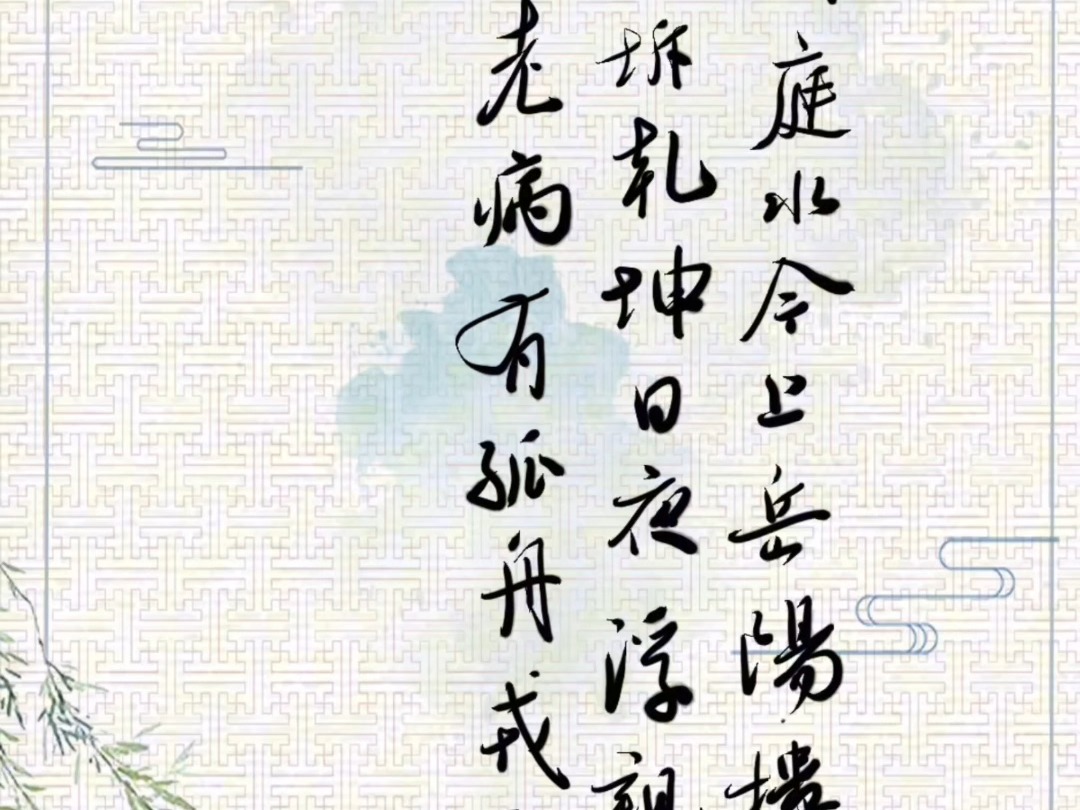 庭水今上岳陽樓
坼乾坤日夜浮親
老病有孤舟戎